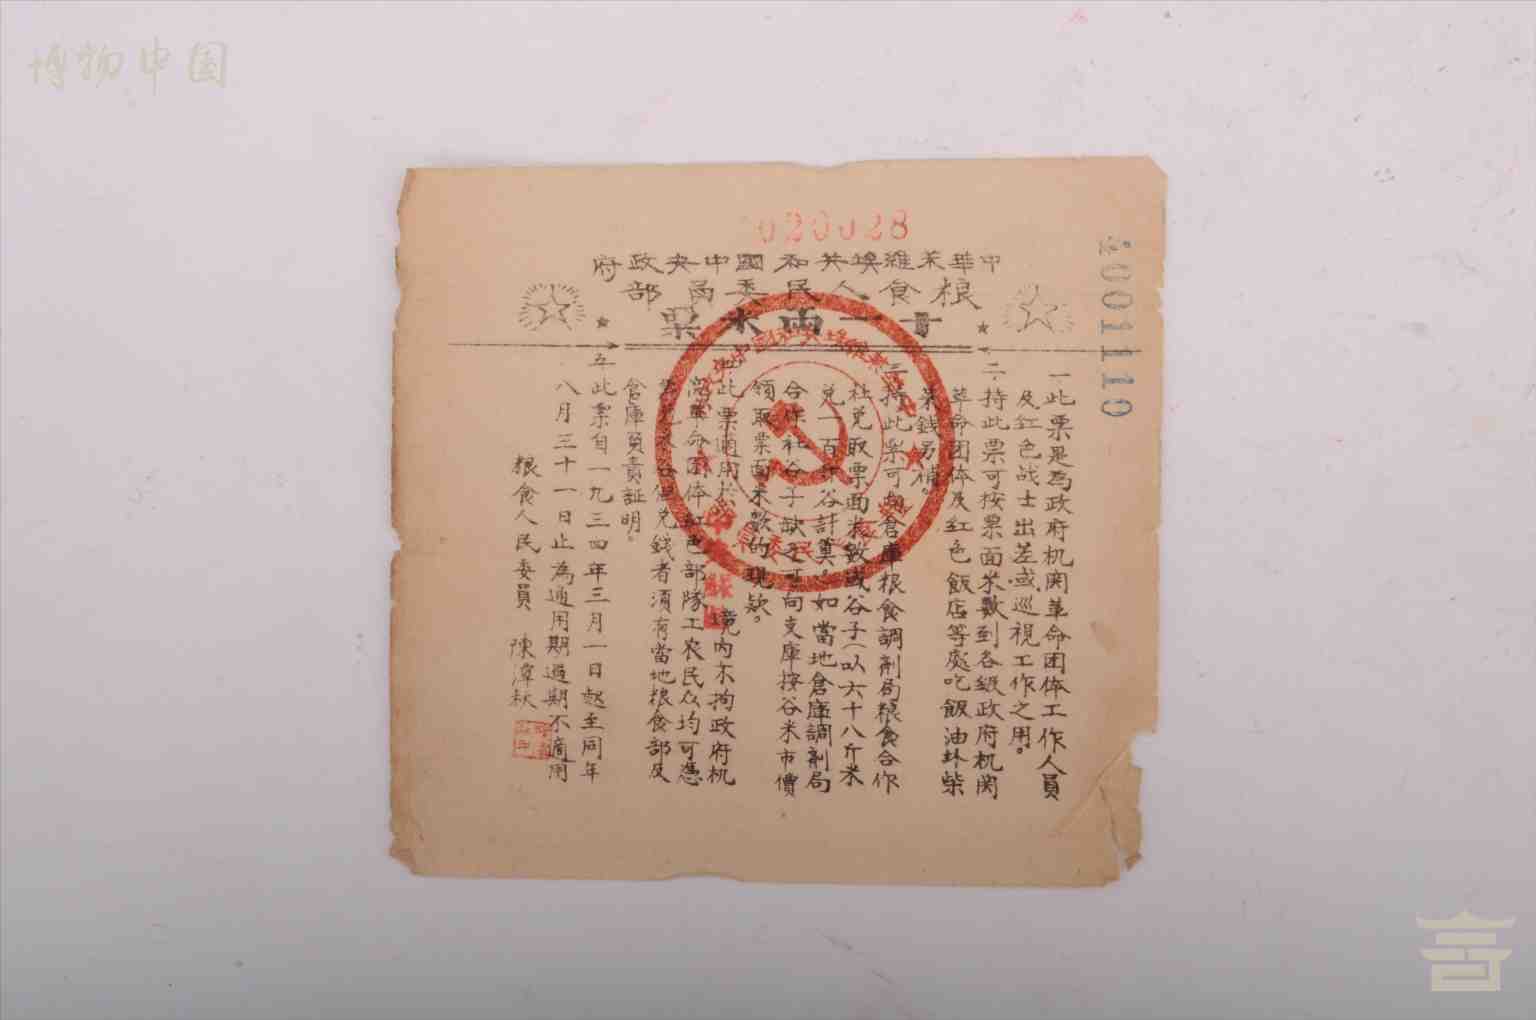 博物中国
020028
2001110
府政央中國和共埃維蘇華中
部员委民人食粮
票米兩二十
一、此票是為政府机関革命团体工作人員
及红色战士出差或巡視工作之用。
二、持此票可按票面米數到各級政府机関
革命团体及红色飯店等處吃飯油盐柴
菜錢另補。
三、持此票可向倉庫粮食調劑局粮食合作
社兑取票面米數或谷子(以六十八斤米
兑一百斤谷計算。如當地倉庫調劑局
合作社谷子缺乏可向支庫按谷米市價
領取票面米數的現欵。
四、此票適用於 境內不拘政府机
関革命团体红色部隊工农民众均可憑
票兑米谷但兑錢者須有當地粮食部及
倉庫負責証明。
五、此票自一九三四年三月一日起至同年
八月三十一日止為通用期過期不適用
粮食人民委員 陳潭秋